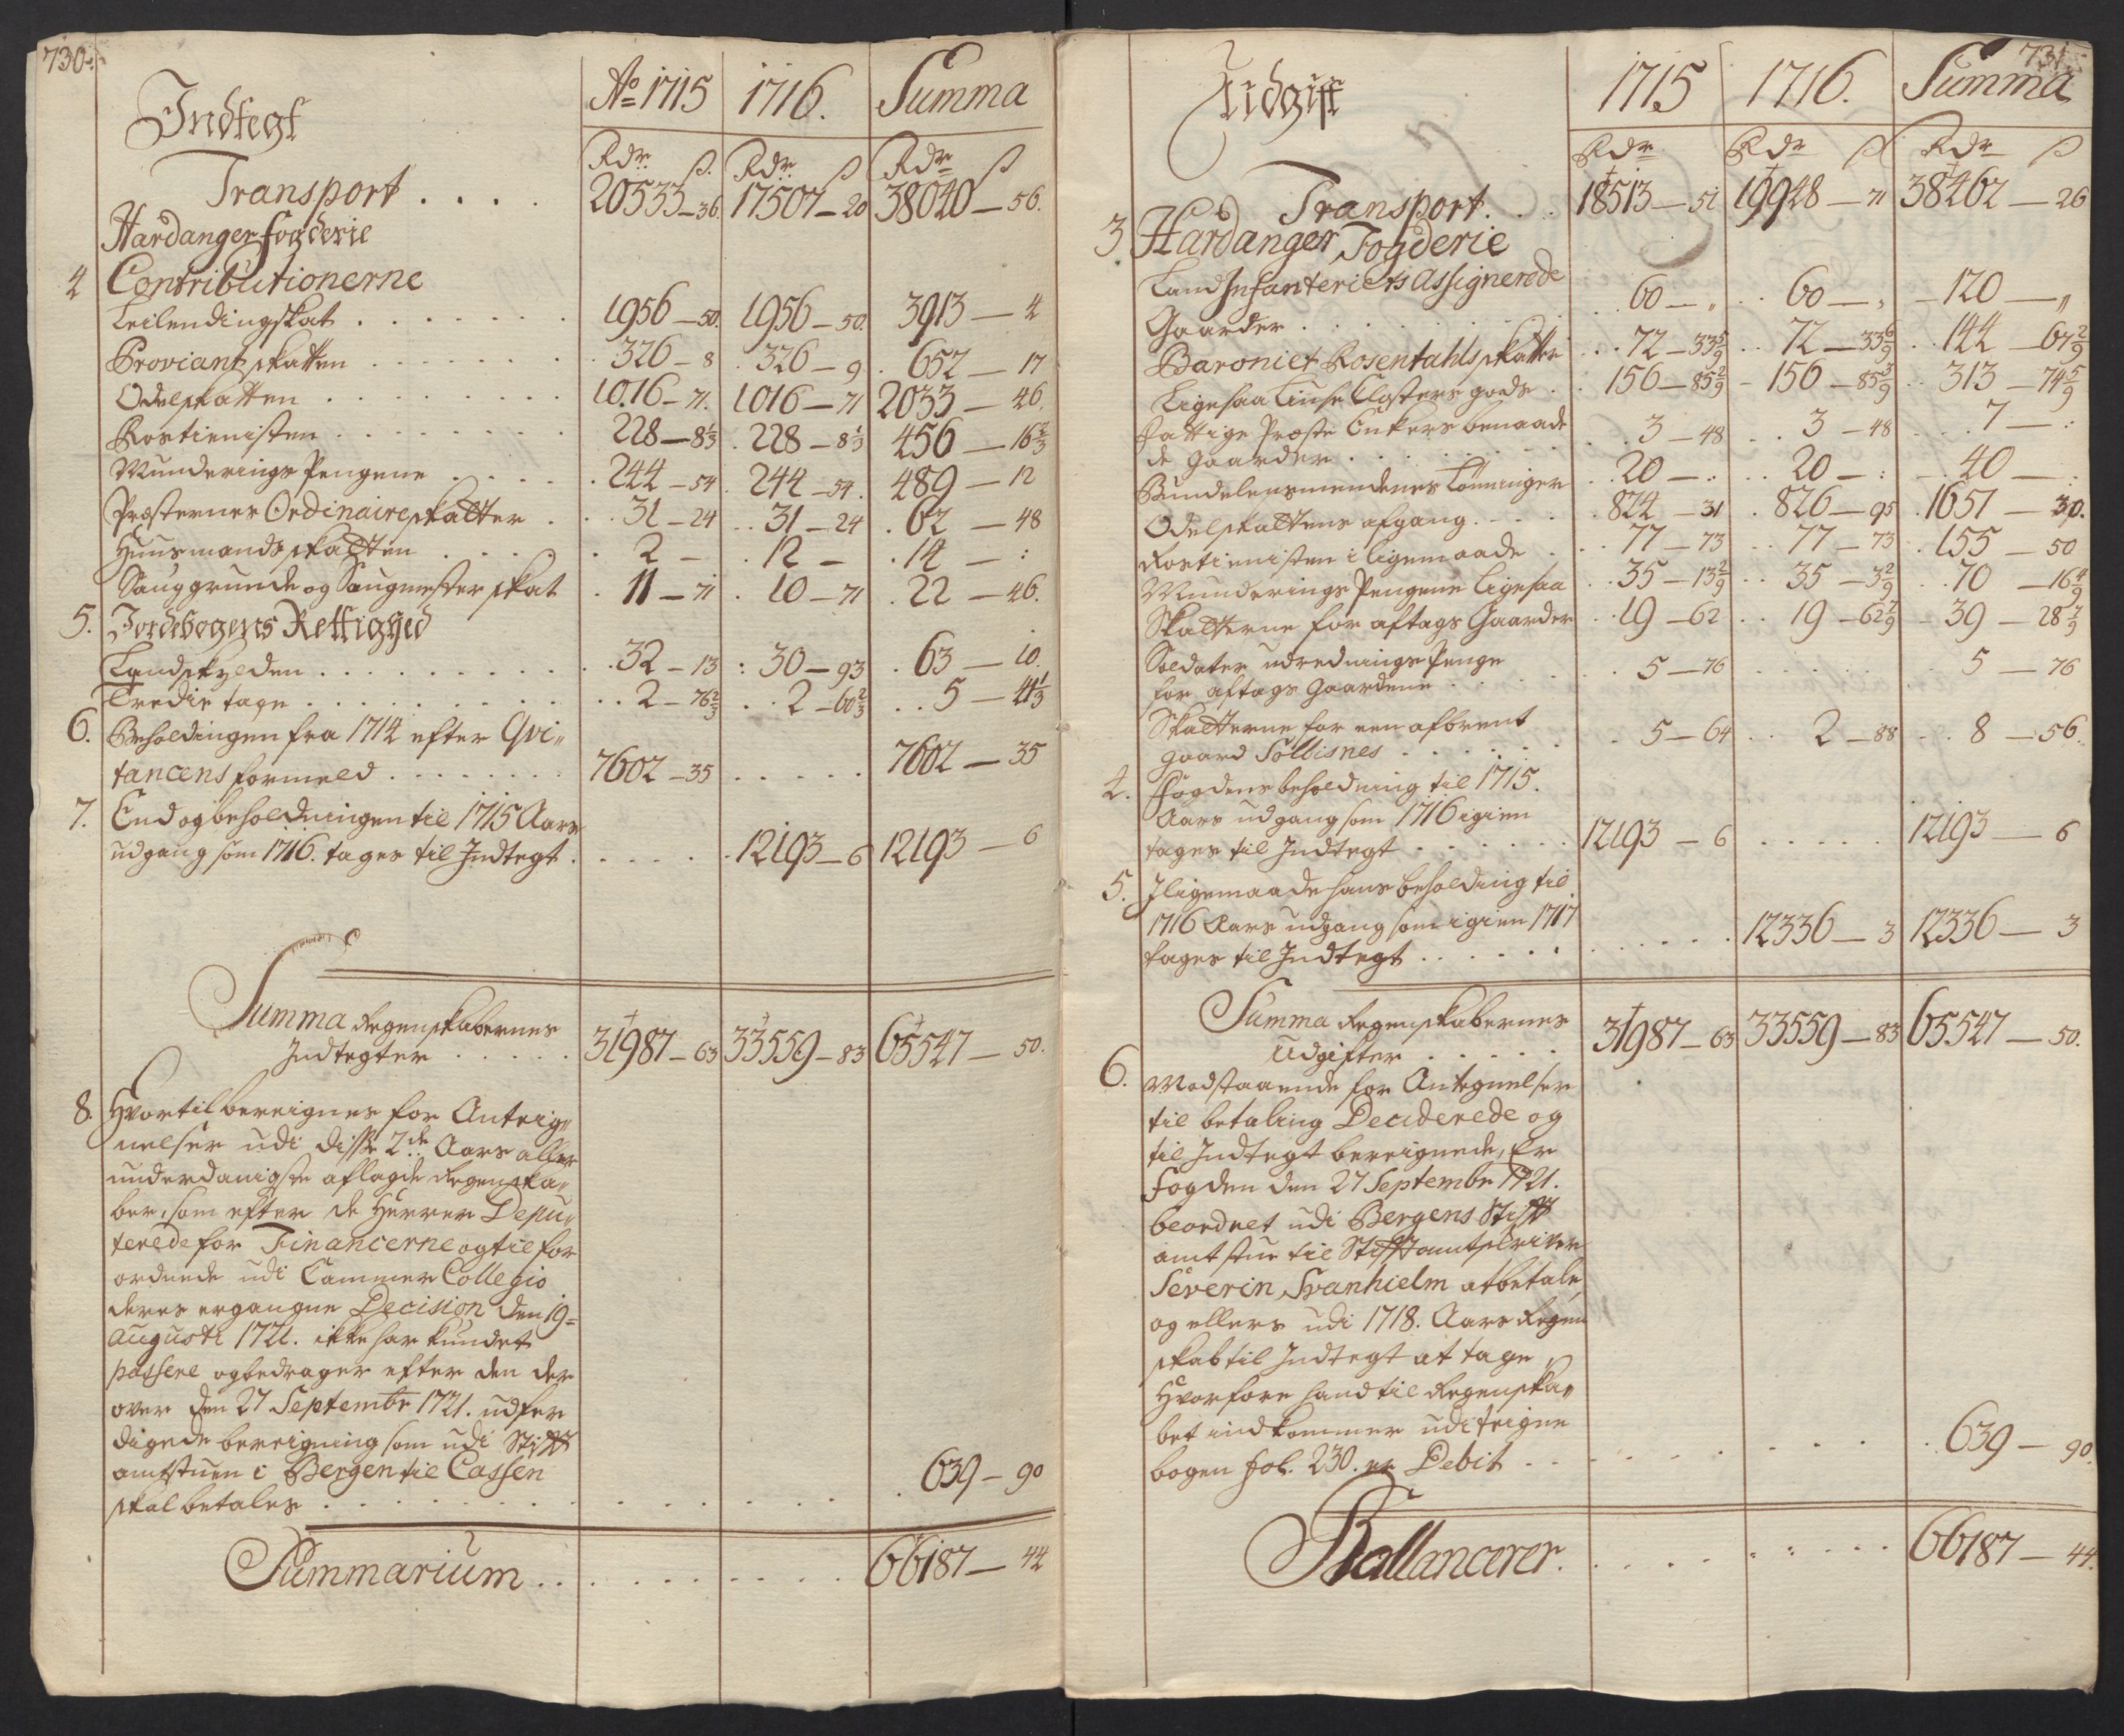 730.
Indtegt Aō 1715 1716. Summa
Rdr. ß. Rdr. ß Rdr ß
Transport . . . . 20533–36. 17507–20 38040–56.
Hardanger fogderie
4 Contributionerne
Leilendingskat . . . . . . . 1956–50. 1956–50. 3913–4
Proviantskatten . . . . . . 326–8 326–9 652–17
Odelskatten . . . . . . . . 1016–71. 1016–71 2033–46.
Rostienisten . . . . . . . . 228–8 1/3 228–8 1/3 456–16 2/3
Munderings Pengene . . . . 244–54 244–54. 489–12
Præsternes Ordinaire skatter . 31–24 31–24 62–48
Huusmands skatten . . . . 2– 12– 14–:
Sauggrunde og Saugmester skat 11–71 10–71 22–46.
5. Jordebogens Rettighed
Landskylden . . . . . . . . 32–13 : 30–93 63–10.
Tredie tage . . . . . . . . 2–76 2/3 2–60 2/3 5–41 1/3
6. Beholdingen fra 1714 efter Qvi„
tancens formeld . . . . . . 7602–35 . . . . . 7602–35
7. End og beholdningen til 1715 Aars
udgang som 1716. tages til Indtegt . . . . . 12193–6 12193–6
Summa Regenskabernes
Indtegter . . . . . 31987–63 33559–83 65547–50.
8. Hvortil bereignes for Anteig„
nelser udi disse 2de Aars aller
underdanigste aflagde Regenska„
ber, som efter de Herrer Depu„
terede for Financerne og tilfor
ordnede udi Cammer Collegio
deres ergangne Decision den 19=
Augusti 1721. ikke har kundet
passere og bedrager efter den der
over den 27 Septembr 1721. udfer
digede bereigning som udi Stifft
amtstuen i Bergen til Cassen
skal betales . . . . . . . . . . 639–90
Summarium . . . . . . . . . 66187–44
731.
Udgift 1715 1716. Summa
Rdr Rdr ß Rdr ß
Transport. . . 18513–51 19948–71 38462–26
3 Hardanger Fogderie
Land Infanteriets Assignerede
Gaarder . . . . . . . . 60–„ 60–„ 120–„
Baroniet Rosentahls skatter 72–33 5/9 72–33 6/9 144–67 2/9
Ligesaa Liuse Closters gods . 156–85 2/9 156–85 3/9 313–74 5/9
Fattige Præste Enkers benaade
de gaarder . . . . . . . . 3–48 3–48 7–:
Bundelensmendenes Lönninger 20–: 20–: 40–
Odelskattens afgang . . . . 824–31 826–95 1651–30.
Rostienisten i ligemaade . . 77–73 77–73 155–50
Munderings Pengene ligesaa 35–13 2/9 35–3 2/9 70–16 4/9
Skatterne for aftags Gaarder 19–62 19–62 7/9 39–28 7/9
Soldater udrednings Penge
for aftags Gaardene . . . . . 5–76 . . . . . 5–76
Skatterne for een afbrent
gaard Solbisnes . . . . . . 5–64 2–88 8–56.
4. Fogdens beholdning til 1715.
Aars udgang som 1716 igien
tages til Indtegt . . . . . . 12193–6 . . . . . 12193–6
5. Iligemaade hans beholding til
1716 Aars udgang som igien 1717
tages til Indtegt . . . . . . . . . . . 12336–3 12336–3
Summa Regenskabernes
Udgifter . . . . . 31987–63 33559–83 65547–50.
6. Modstaaende for Antegnelser
til betaling Deciderede og
til Indtegt bereignede, Er
Fogden den 27 Septembr 1721.
beordret udi Bergens Stiffts
amtstue til Stifftamtskriver
Severin Svanhielm at betale,
og ellers udi 1718. Aars Regen
skab til Indtegt at tage„
Hvorfore hand til Regenska„
bet indkommer udi Reigne
bogen fol. 230. er Debit . . . . . . . . . 639–90.
Ballancerer. . . . . . . . . . 66187–44.